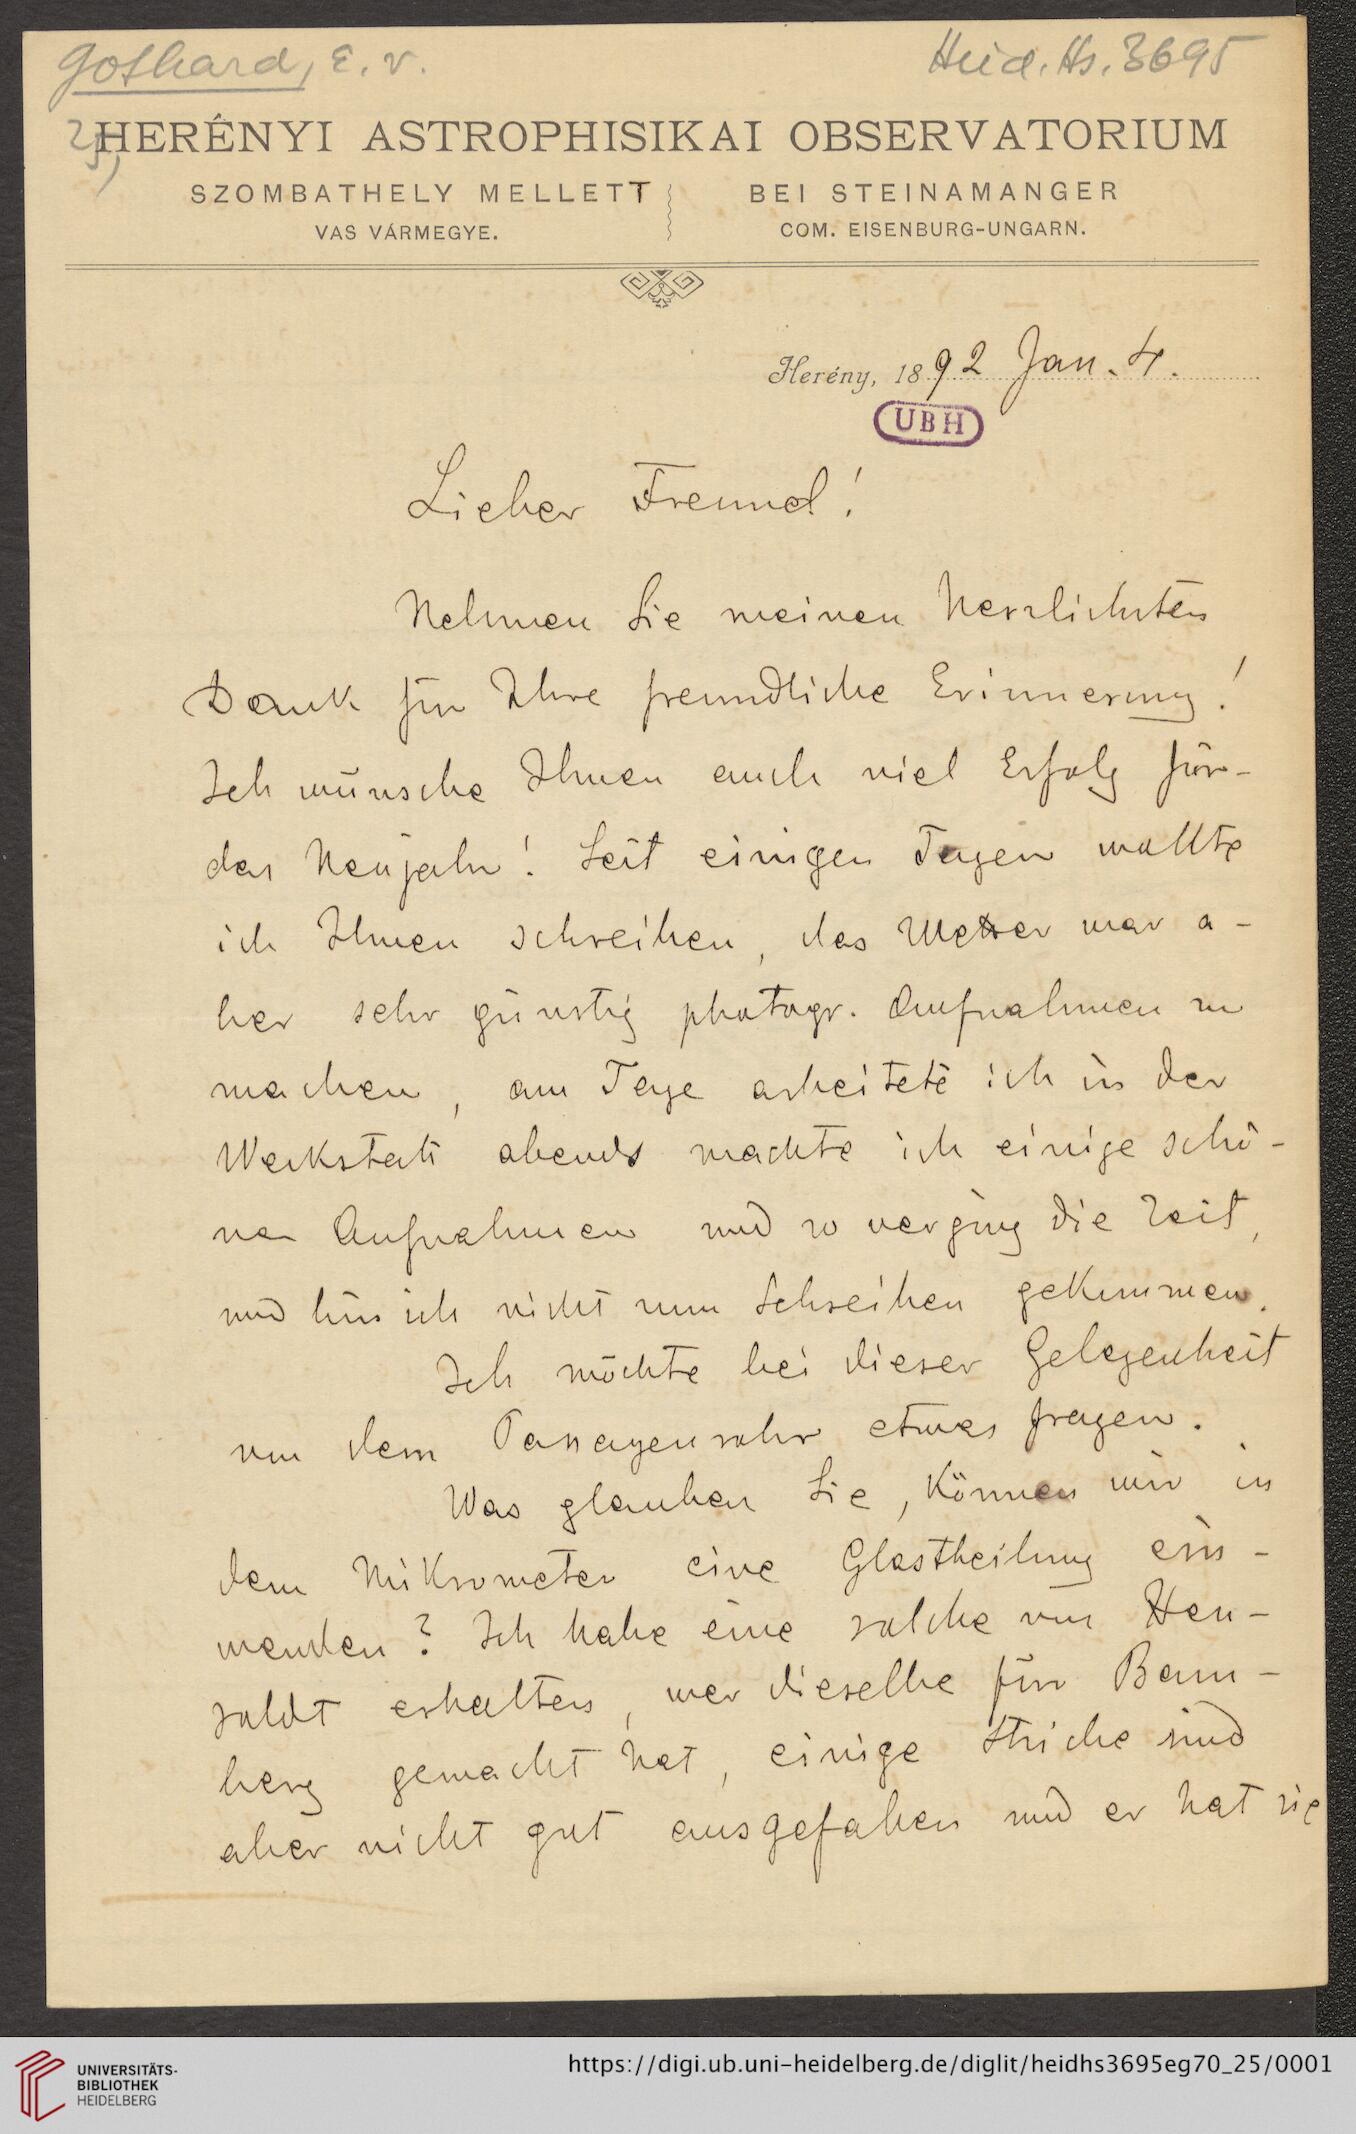 Gothard, E. v.
Heid. Hs. 3695
25,
HERÉNYI ASTROPHISIKAI OBSERVATORIUM
SZOMBATHELY MELLETT
VAS VÁRMEGYE.
BEI STEINAMANGER
COM. EISENBURG-UNGARN.
Herény, 1892 Jan. 4.
UBH
Lieber Freund!
Nehmen Sie meinen herzlichsten
Dank für Ihre freundliche Erinnerung!
Ich wünsche Ihnen auch viel Erfolg für-
das Neujahr! Seit einigen Tagen wollte
ich Ihnen schreiben, das Wetter war a-
ber sehr günstig photogr. Aufnahmen zu
machen, am Tage arbeitete ich in der
Werkstatt abends machte ich einige schö-
ne Aufnahmen und so verging die Zeit,
und bin ich nicht zum Schreiben gekommen.
Ich möchte bei dieser Gelegenheit
von dem Passagenrohr etwas fragen.
Was glauben Sie, können wir in
dem Mikrometer eine Glastheilung ein-
wenden? Ich habe eine solche von Hen-
soldt erhalten, wer dieselbe für Bam-
berg gemacht hat, einige Striche sind
aber nicht gut ausgefallen und er hat sie
UNIVERSITÄTS-
BIBLIOTHEK
HEIDELBERG
https://digi.ub.uni-heidelberg.de/diglit/heidhs3695eg70_25/0001